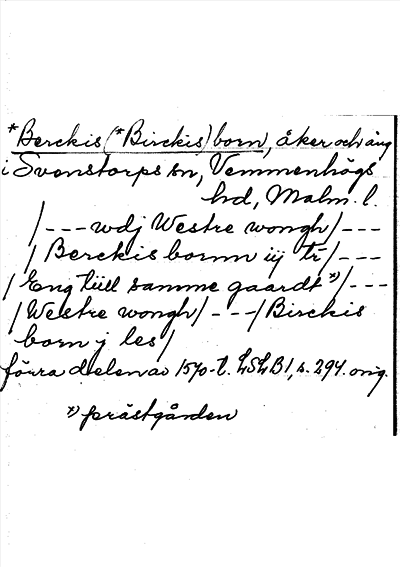 *Berckis (*Birckis) born, åker och äng
i Svenstorps sn, Vemmenhögs
hd, Malm. l.
/---wdj Westre wongh/---
/Berckis bornn iij tr/---
/Eng tiill samme gaardt *)/---
/Westre wongh/---/Birckis
born j les/
förra delen av 1570-t. LSLB1, s. 294. orig.
*) prästgården